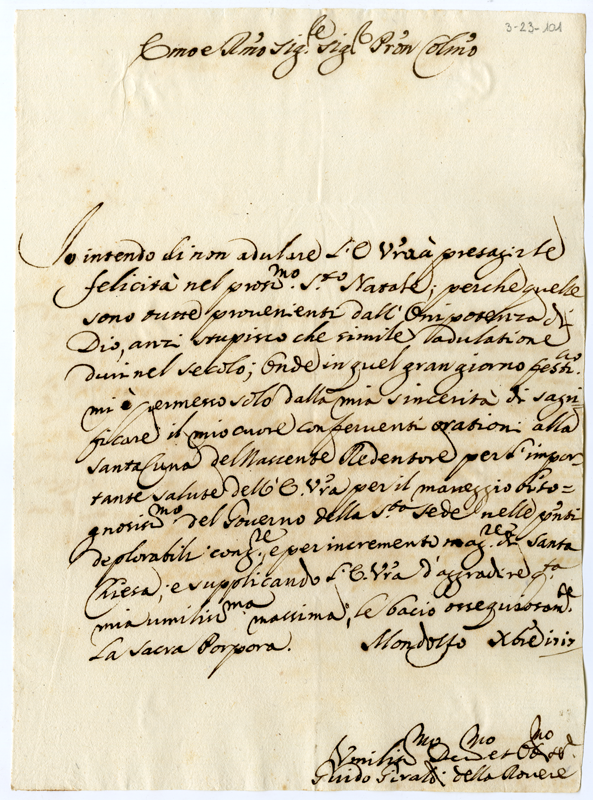 3-23-101
Emo e Rmo Sig.re Sig.r Pron Colmo
Io intendo di non adulare l'E. Vra à presagirle
felicità nel prossmo S.to Natale; perche quelle
sono tutte provenienti dall'Onipotenza di
Dio, anzi stupisco che simile adulatione
duri nel secolo; Onde in quel gran giorno festi.uo
mi è permesso solo dalla mia sincerità di sagri=
ficare il mio cuore con ferventi orationi alla
Santa Cuna del Nascente Redentore per l'impor=
tante salute dell'E. Vra per il maneggio biso=
gnosissmo del Governo della S.ta Sede nelle pnti
deplorabili cong.re e per incremento mag.re di Santa
Chiesa; e supplicando l'E. Vra d'aggradire q.ta
mia umilissma massima, le bacio ossequiosam.te
La Sacra Porpora. Mondolfo Xbre 1717
Vmilismo Devmo et Obbmo
Guido Giraldi della Rovere